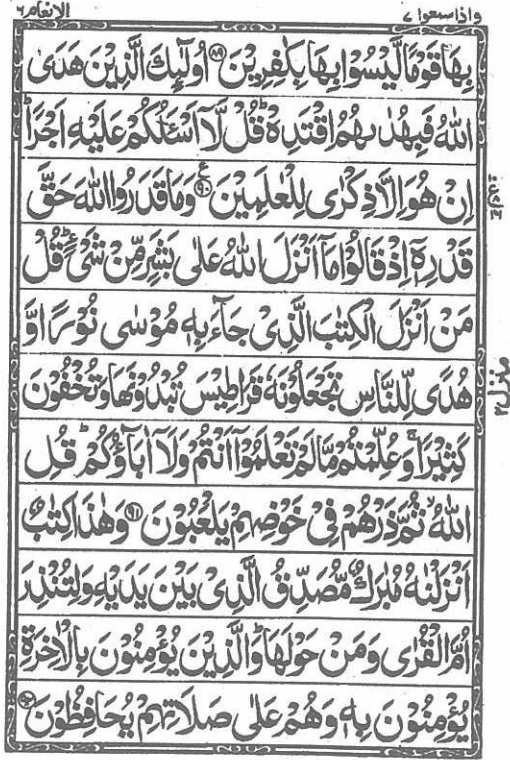 واذاسمعوا ٧
الانعام ٦
بِهَا قَوْمًا لَّيْسُوْا بِهَا بِكٰفِرِيْنَ ۝٨٩ اُولٰٓئِكَ الَّذِيْنَ هَدَى
اللّٰهُ فَبِهُدٰىهُمُ اقْتَدِهْ ؕ قُلْ لَّاۤ اَسْـَٔلُكُمْ عَلَيْهِ اَجْرًا ؕ
اِنْ هُوَ اِلَّا ذِكْرٰى لِلْعٰلَمِيْنَ ۝٩٠ وَمَا قَدَرُوا اللّٰهَ حَقَّ
قَدْرِهٖۤ اِذْ قَالُوْا مَاۤ اَنْزَلَ اللّٰهُ عَلٰى بَشَرٍ مِّنْ شَيْءٍ ؕ قُلْ
مَنْ اَنْزَلَ الْكِتٰبَ الَّذِيْ جَآءَ بِهٖ مُوْسٰى نُوْرًا وَّ
هُدًى لِّلنَّاسِ تَجْعَلُوْنَهٗ قَرَاطِيْسَ تُبْدُوْنَهَا وَتُخْفُوْنَ
كَثِيْرًا ۚ وَعُلِّمْتُمْ مَّا لَمْ تَعْلَمُوْۤا اَنْتُمْ وَلَاۤ اٰبَآؤُكُمْ ؕ قُلِ
اللّٰهُ ۙ ثُمَّ ذَرْهُمْ فِيْ خَوْضِهِمْ يَلْعَبُوْنَ ۝٩١ وَهٰذَا كِتٰبٌ
اَنْزَلْنٰهُ مُبٰرَكٌ مُّصَدِّقُ الَّذِيْ بَيْنَ يَدَيْهِ وَلِتُنْذِرَ
اُمَّ الْقُرٰى وَمَنْ حَوْلَهَا ؕ وَالَّذِيْنَ يُؤْمِنُوْنَ بِالْاٰخِرَةِ
يُؤْمِنُوْنَ بِهٖ وَهُمْ عَلٰى صَلَاتِهِمْ يُحَافِظُوْنَ ۝٩٢
منزل ٢